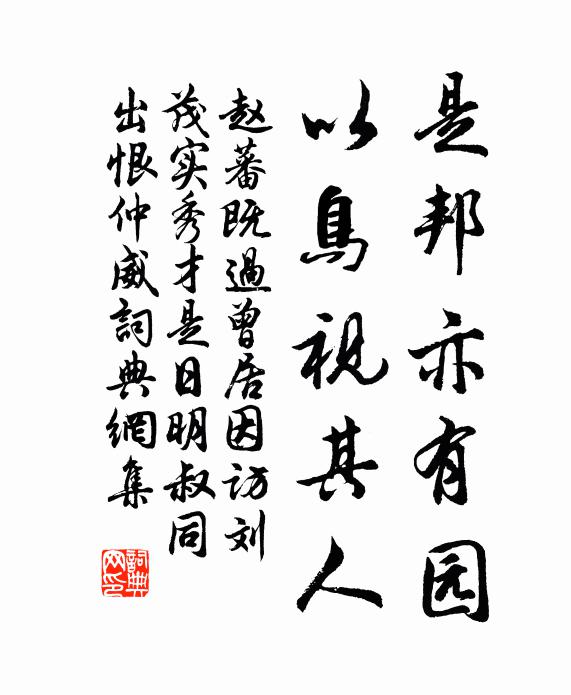 是邦亦有园
以鳥視其人
赵蕃既過曾居因访刘
茂实秀才是日明叔同
出恨仲威詞典網集
詞典
网印